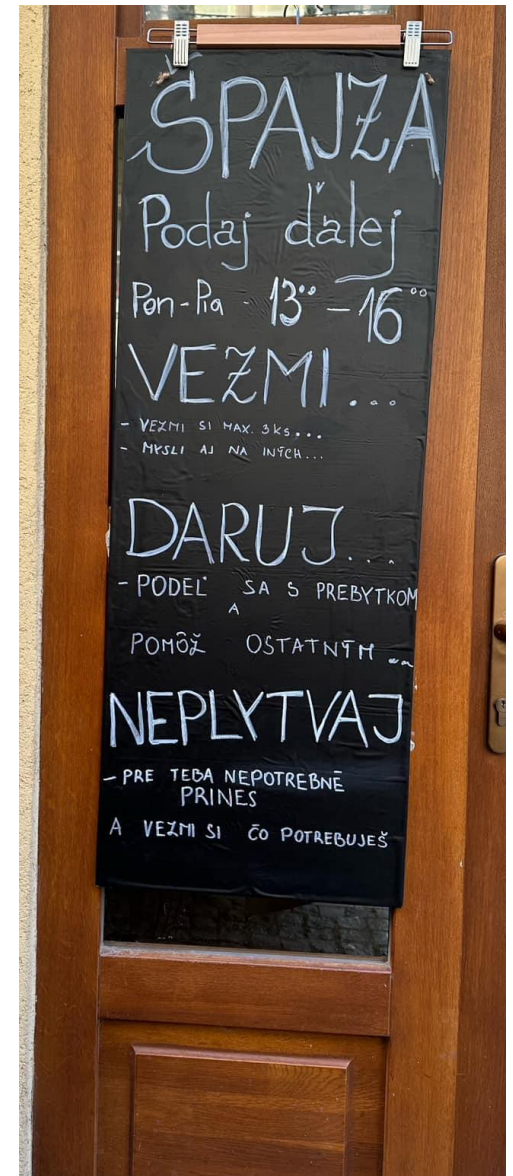 ŠPAJZA
Podaj ďalej
Pon-Pia - 13°° - 16°°
VEZMI...
- VEZMI SI MAX. 3ks...
- MYSLI AJ NA INÝCH...
DARUJ...
- PODEĽ SA S PREBYTKOM
A
POMÔŽ OSTATNÝM ...
NEPLYTVAJ
- PRE TEBA NEPOTREBNÉ
PRINES
A VEZMI SI ČO POTREBUJEŠ